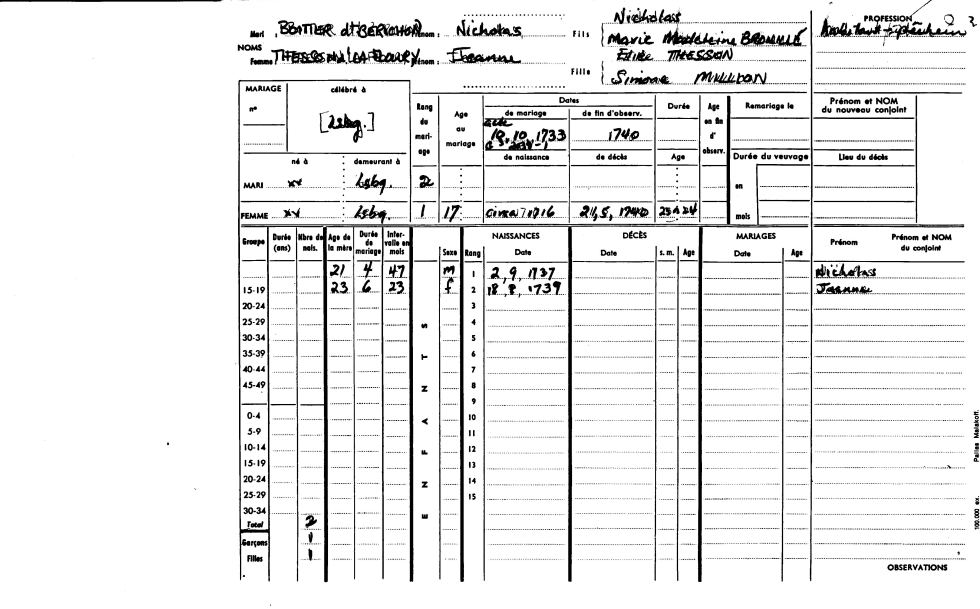 Nicholas
Mari Prénom : Nicholas Fils Marie Madeleine PROFESSION
NOMS
Femme Prénom : Jeanne THESSON
Fille Simone
MARIAGE célébré à
n° [Lsbg.]
Rang du mariage
Age au mariage
Dates
de mariage de fin d'observ.
10, 10, 1733 1740
de naissance de décès
Durée
Age
Age en fin d' observ.
Remariage le
Durée du veuvage
en
mois
Prénom et NOM du nouveau conjoint
Lieu du décès
né à demeurant à
MARI xx Lsbg. 2
FEMME xx Lsbg. 1 17 circa 1716 1740 23 à 24
Groupe Durée (ans) Nbre de nais. Age de la mère Durée de mariage Intervalle en mois Sexe Rang NAISSANCES Date DÉCÈS Date s. m. Age MARIAGES Date Age Prénom Prénom et NOM du conjoint
21 4 47 m 1 2, 9, 1737 Nicholas
15-19 23 6 23 f 2 18, 8, 1739 Jeanne
20-24 3
25-29 4
30-34 5
35-39 6
40-44 7
45-49 8
9
0-4 10
5-9 11
10-14 12
15-19 13
20-24 14
25-29 15
30-34
Total 2
Garçons 1
Filles 1
ENFANTS
OBSERVATIONS
100.000 ex. Malakoff.